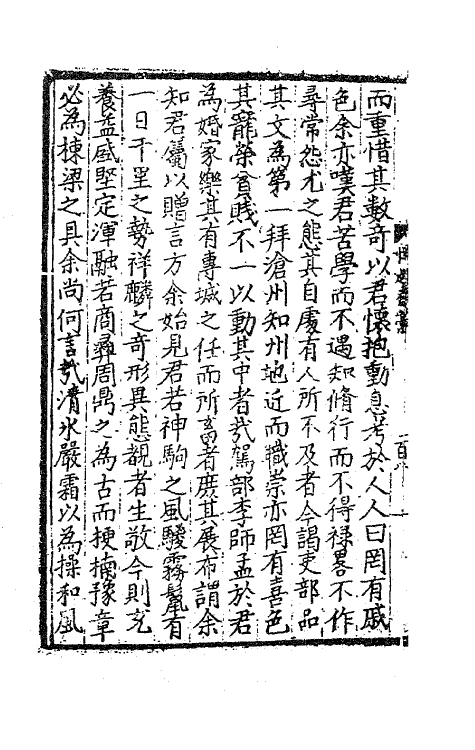 而重惜其數奇以君懷抱動息考於人人曰罔有戚
色余亦嘆君苦學而不遇知脩行而不得祿畧不作
尋常怨尤之態其自處有人所不及者今謁吏部品
其文為第一拜滄州知州地近而職崇亦罔有喜色
其寵榮貧賤不一以動其中者㢤駕部李師孟於君
為婚家樂其有專城之任而所畜者庶其展布謂余
知君屬以贈言方余始見君若神駒之風騣霧鬣有
一日千里之勢祥麟之奇形異態覩者生敬今則充
養益盛堅定渾融若商彞周鼎之為古而梗楠豫章
必為棟梁之具余尚何言㢤清氷嚴霜以為操和風